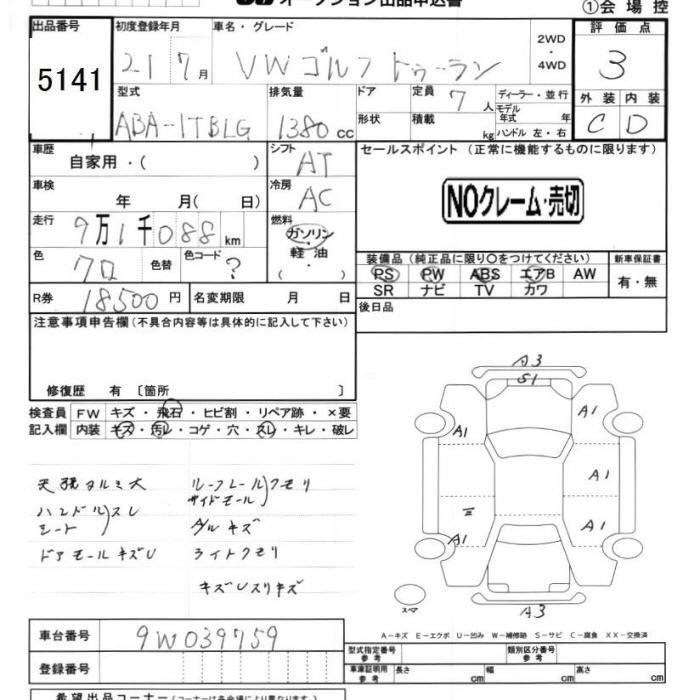 オークション出品申込書
①会場控
出品番号 初度登録年月 車名・グレード 2WD・4WD 評価点
5141 21 7月 VWゴルフトゥーラン 3
型式 排気量 ドア 定員 7人 ディーラー・並行 外装 内装
ABA-1TBLG 1380cc 形状 積載 kg モデル年式 年 ハンドル 左・右 C D
車歴 自家用・( ) シフト AT セールスポイント (正常に機能するものに限ります)
車検 年 月( 日) 冷房 AC NOクレーム・売切
走行 9万1千088km 燃料 ガソリン・軽油・( )
色 クロ 色替 色コード ?
装備品(純正品に限り○をつけてください) 新車保証書
PS PW ABS エアB AW 有・無
SR ナビ TV カワ
R券 18500円 名変期限 月 日 後日品
注意事項申告欄(不具合内容等は具体的に記入して下さい)
修復歴 有 〔箇所 〕
検査員 FW キズ・飛石・ヒビ割・リペア跡・×要
記入欄 内装 キズ・汚レ・コゲ・穴・スレ・キレ・破レ
天張タルミ大 ルーフレール クモリ
ハンドル スレ サイドモール
シート グルキズ
ドアモールキズU ライトクモリ
キズUスリキズ
A3
S1
A1 A1
A1
A1 A1
A3
スペア
A-キズ E-エクボ U-凹み W-補修跡 S-サビ C-腐食 XX-交換済
車台番号 9W039759
型式指定番号 参考 類別区分番号 参考
登録番号 車庫証明用 参考 長さ cm 幅 cm 高さ cm
希望出品コーナー